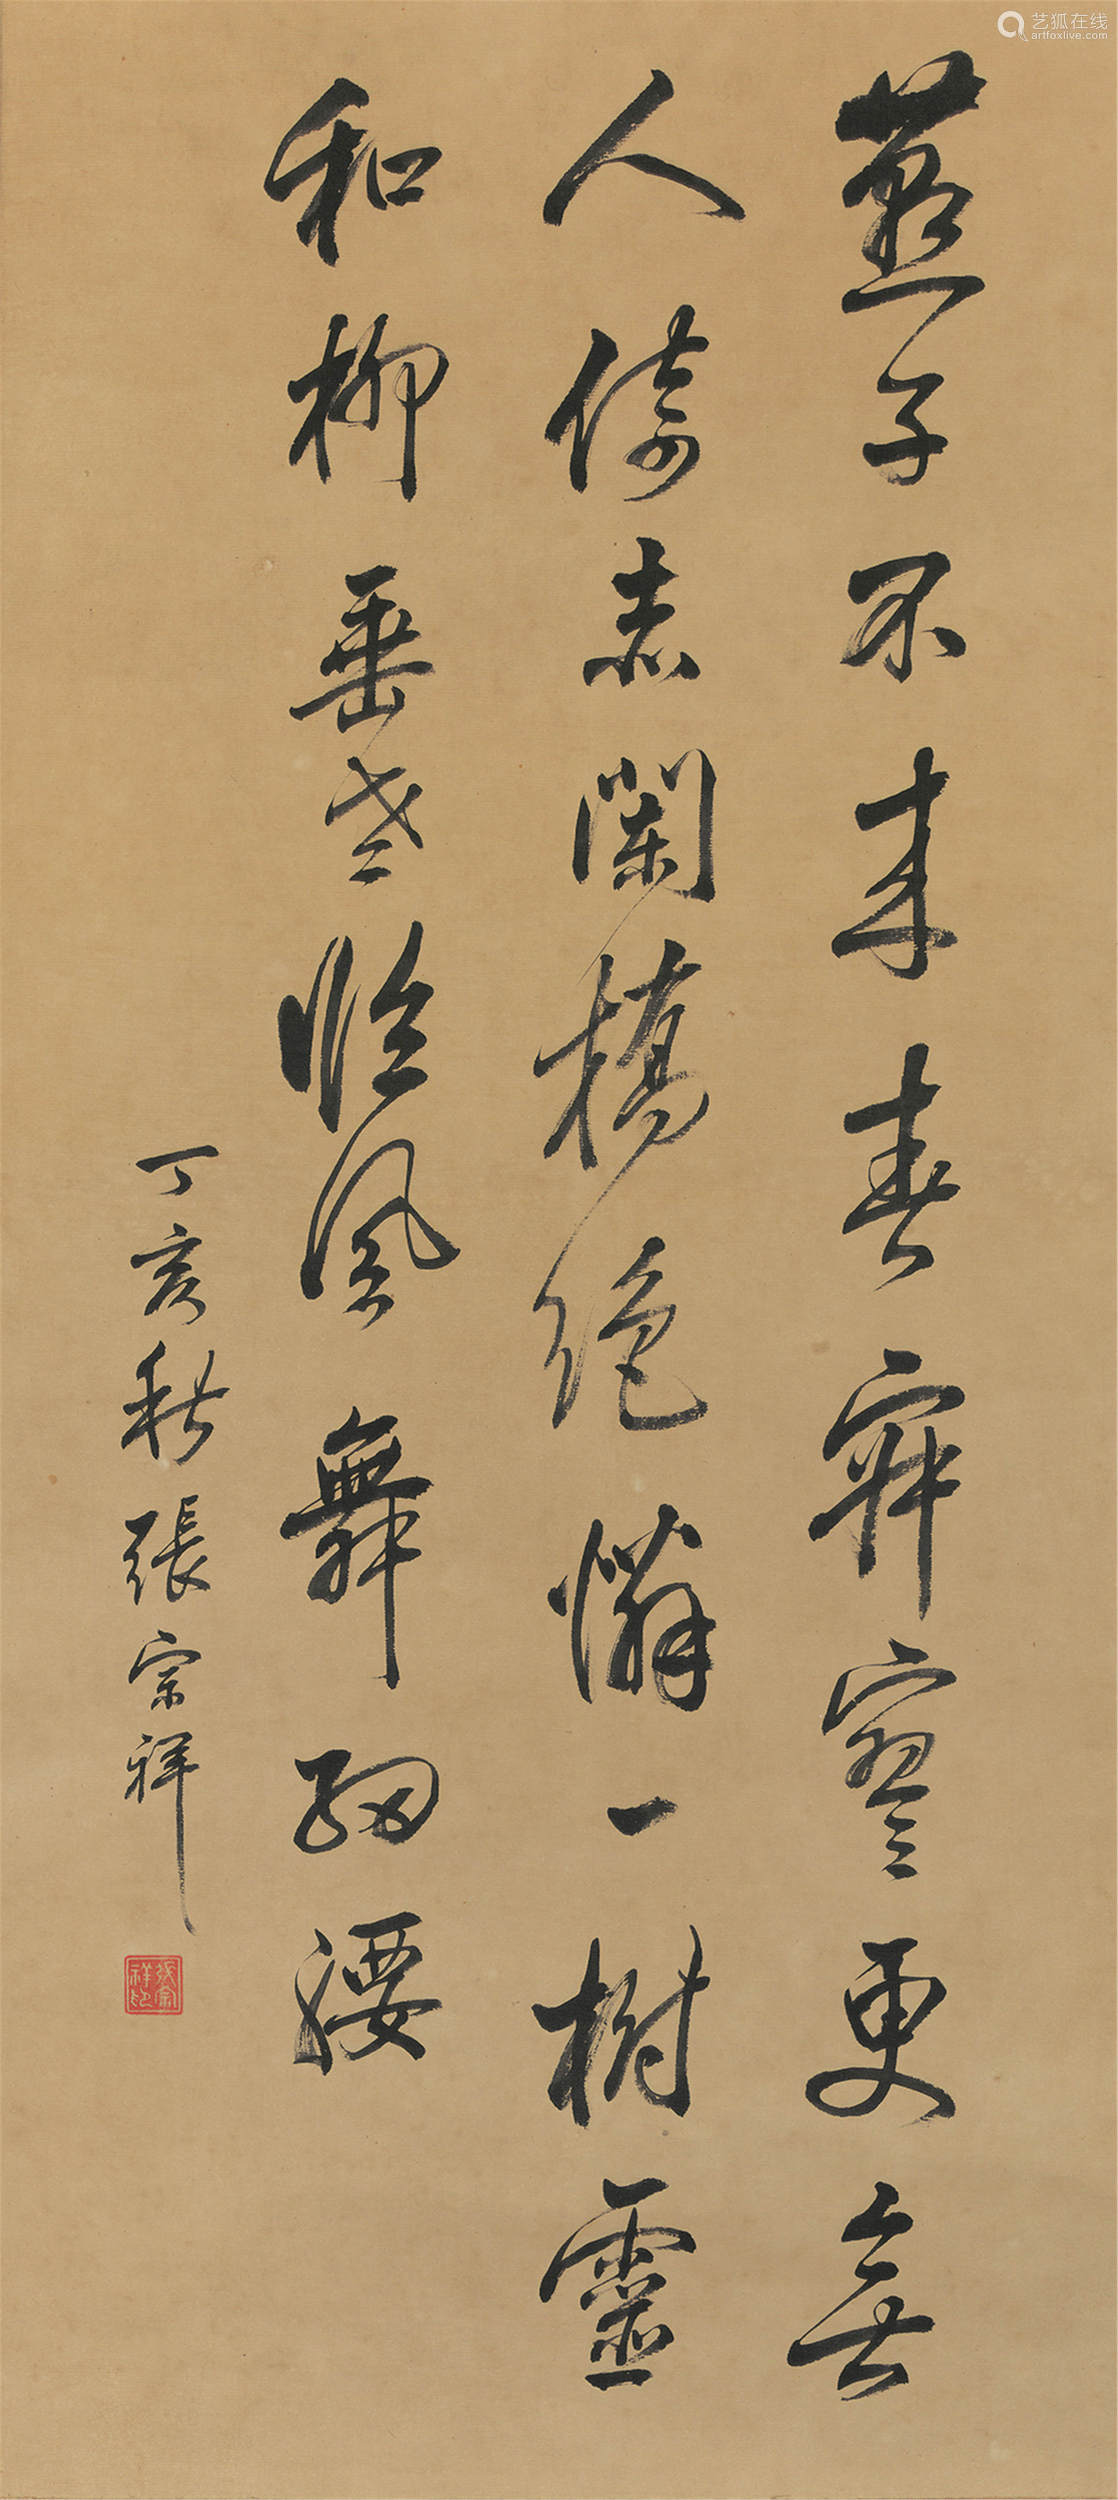 燕子不來春寂寥更無
人倚赤闌橋絕憐一樹靈
和柳垂老臨風舞細腰
丁亥秋張宗祥
張宗祥印
艺狐在线
artfoxlive.com